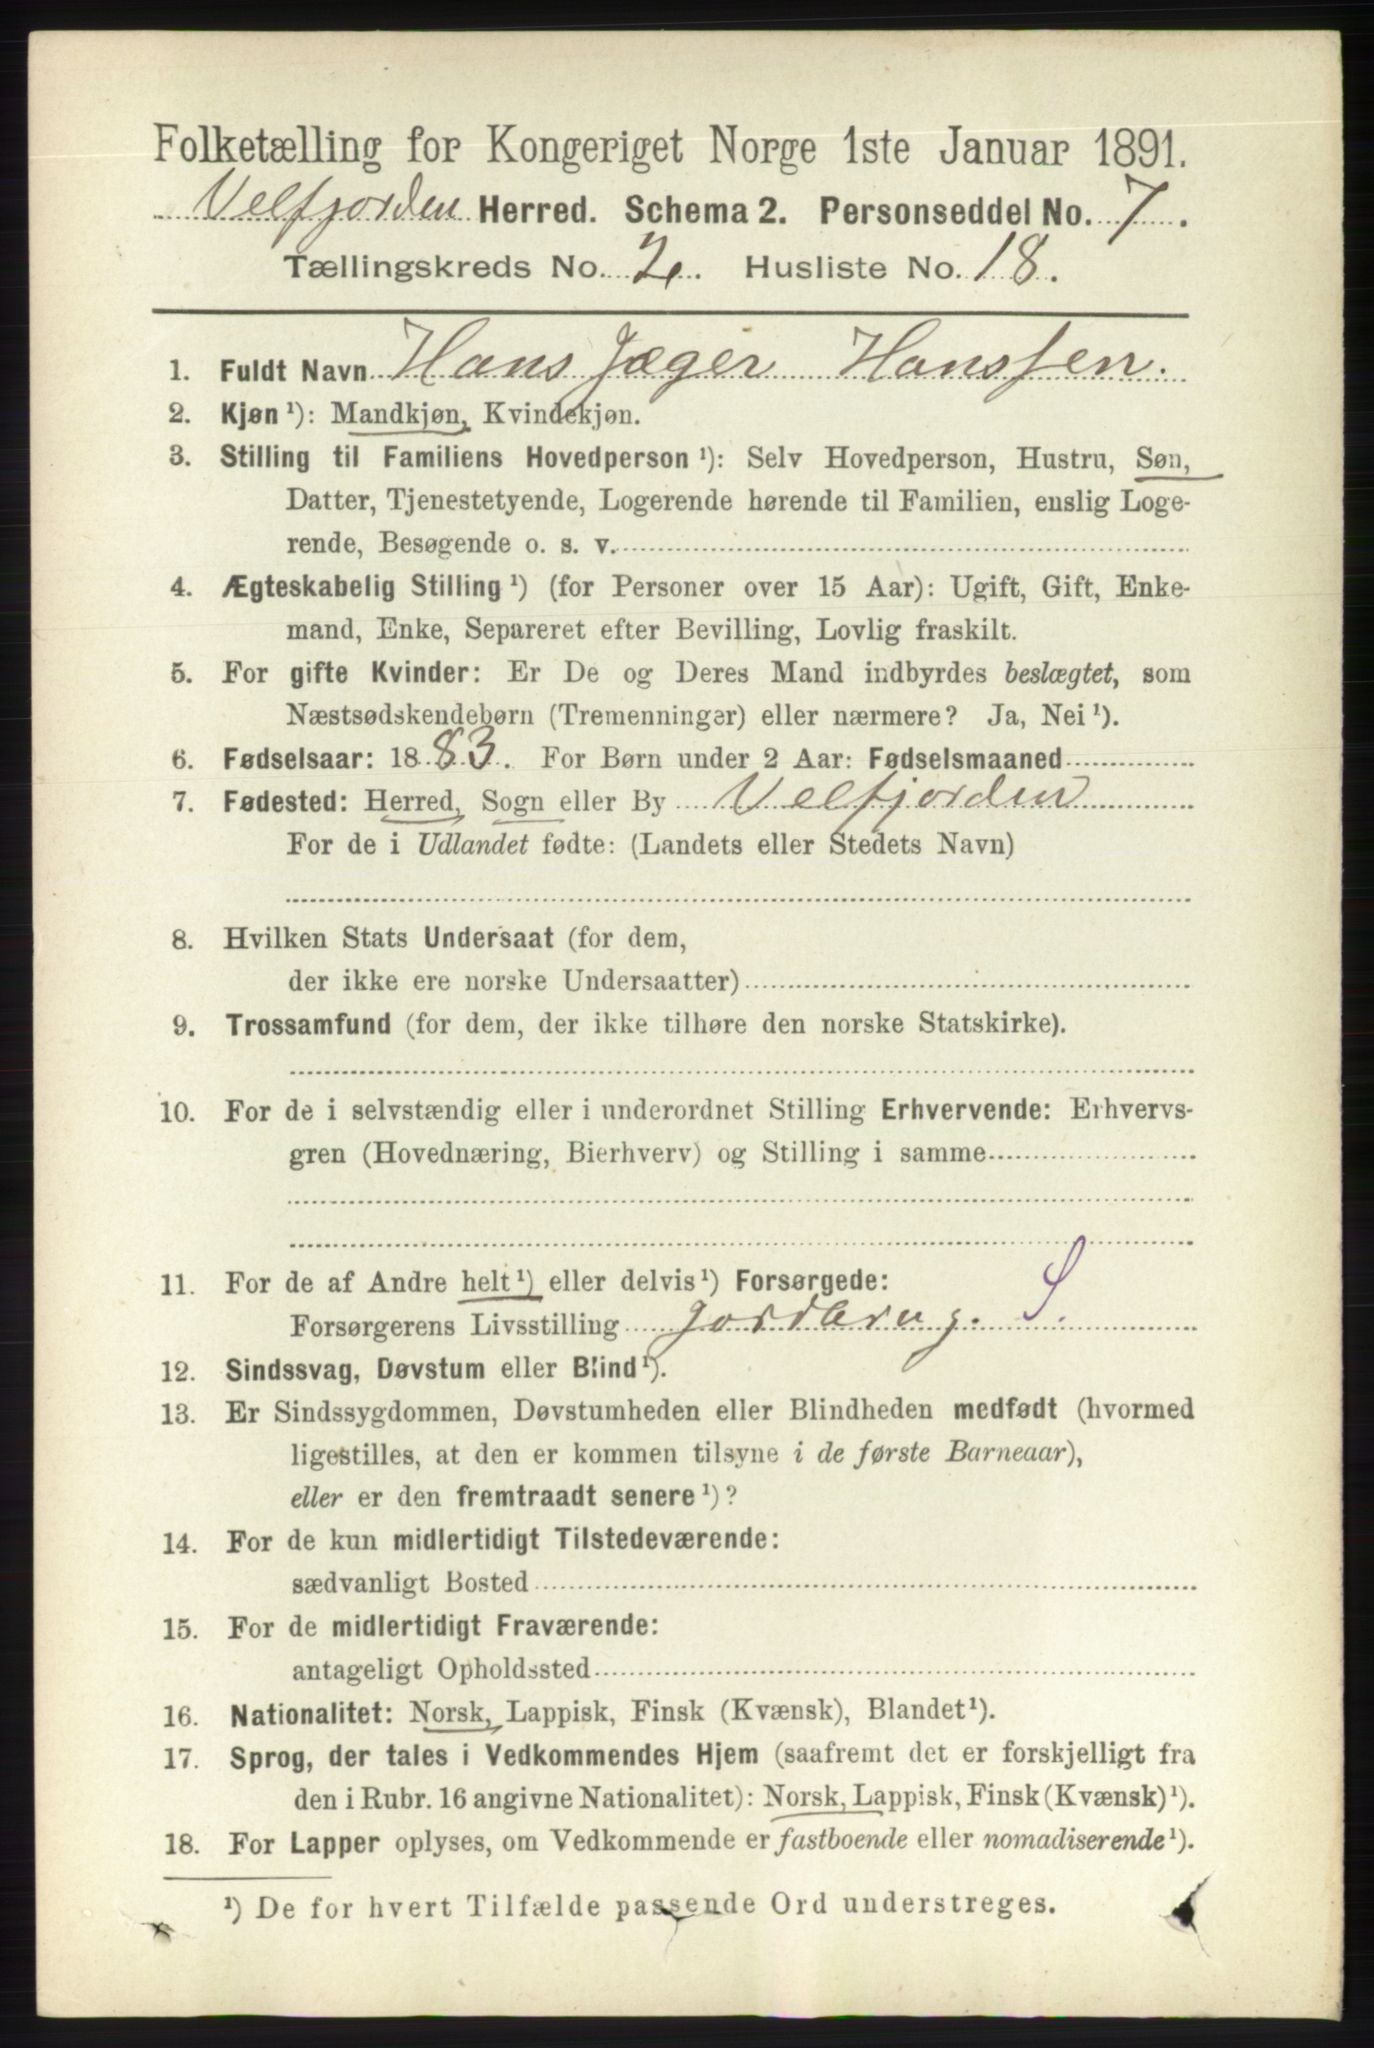 Folketælling for Kongeriget Norge 1ste Januar 1891.
Velfjorden Herred. Schema 2. Personseddel No. 7.
Tællingskreds No. 2. Husliste No. 18.
1. Fuldt Navn Hans Jæger Hanssen.
2. Kjøn¹): Mandkjøn, Kvindekjøn.
3. Stilling til Familiens Hovedperson¹): Selv Hovedperson, Hustru, Søn,
Datter, Tjenestetyende, Logerende hørende til Familien, enslig Loge-
rende, Besøgende o. s. v.
4. Ægteskabelig Stilling¹) (for Personer over 15 Aar): Ugift, Gift, Enke-
mand, Enke, Separeret efter Bevilling, Lovlig fraskilt.
5. For gifte Kvinder: Er De og Deres Mand indbyrdes beslægtet, som
Næstsødskendebørn (Tremenninger) eller nærmere? Ja, Nei¹).
6. Fødselsaar: 1883. For Børn under 2 Aar: Fødselsmaaned
7. Fødested: Herred, Sogn eller By Velfjorden
For de i Udlandet fødte: (Landets eller Stedets Navn)
8. Hvilken Stats Undersaat (for dem,
der ikke ere norske Undersaatter)
9. Trossamfund (for dem, der ikke tilhøre den norske Statskirke).
10. For de i selvstændig eller i underordnet Stilling Erhvervende: Erhvervs-
gren (Hovednæring, Bierhverv) og Stilling i samme
11. For de af Andre helt¹) eller delvis¹) Forsørgede:
Forsørgerens Livsstilling Jordbrug. S.
12. Sindssvag, Døvstum eller Blind¹).
13. Er Sindssygdommen, Døvstumheden eller Blindheden medfødt (hvormed
ligestilles, at den er kommen tilsyne i de første Barneaar),
eller er den fremtraadt senere¹)?
14. For de kun midlertidigt Tilstedeværende:
sædvanligt Bosted
15. For de midlertidigt Fraværende:
antageligt Opholdssted
16. Nationalitet: Norsk, Lappisk, Finsk (Kvænsk), Blandet¹).
17. Sprog, der tales i Vedkommendes Hjem (saafremt det er forskjelligt fra
den i Rubr. 16 angivne Nationalitet): Norsk, Lappisk, Finsk (Kvænsk)¹).
18. For Lapper oplyses, om Vedkommende er fastboende eller nomadiserende¹).
¹) De for hvert Tilfælde passende Ord understreges.